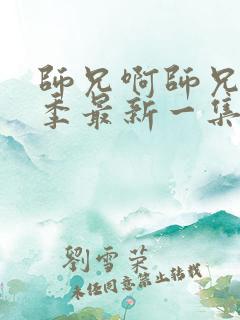 師兄啊師兄
季最新一集
劉雪榮
未经同意禁止转载